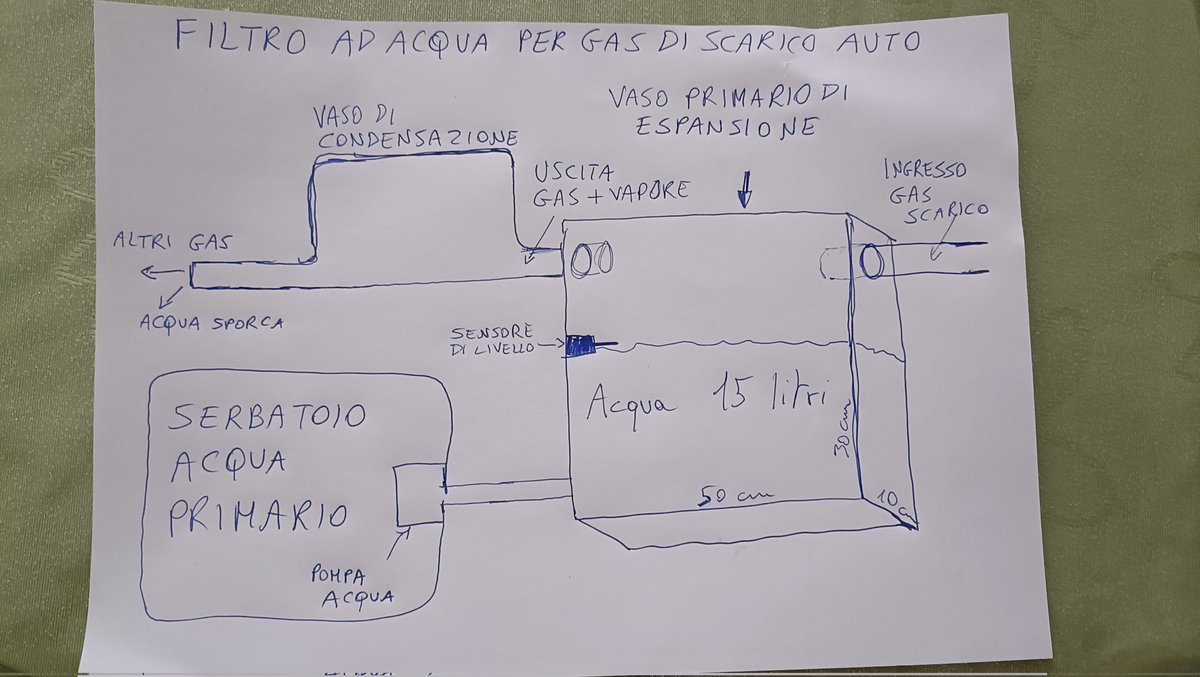 FILTRO AD ACQUA PER GAS DI SCARICO AUTO
VASO PRIMARIO DI
ESPANSIONE
VASO DI
CONDENSAZIONE
USCITA
GAS + VAPORE
INGRESSO
GAS
SCARICO
ALTRI GAS
ACQUA SPORCA
SENSORE
DI LIVELLO
Acqua 15 litri
30 cm
50 cm
10 cm
SERBATOIO
ACQUA
PRIMARIO
POMPA
ACQUA